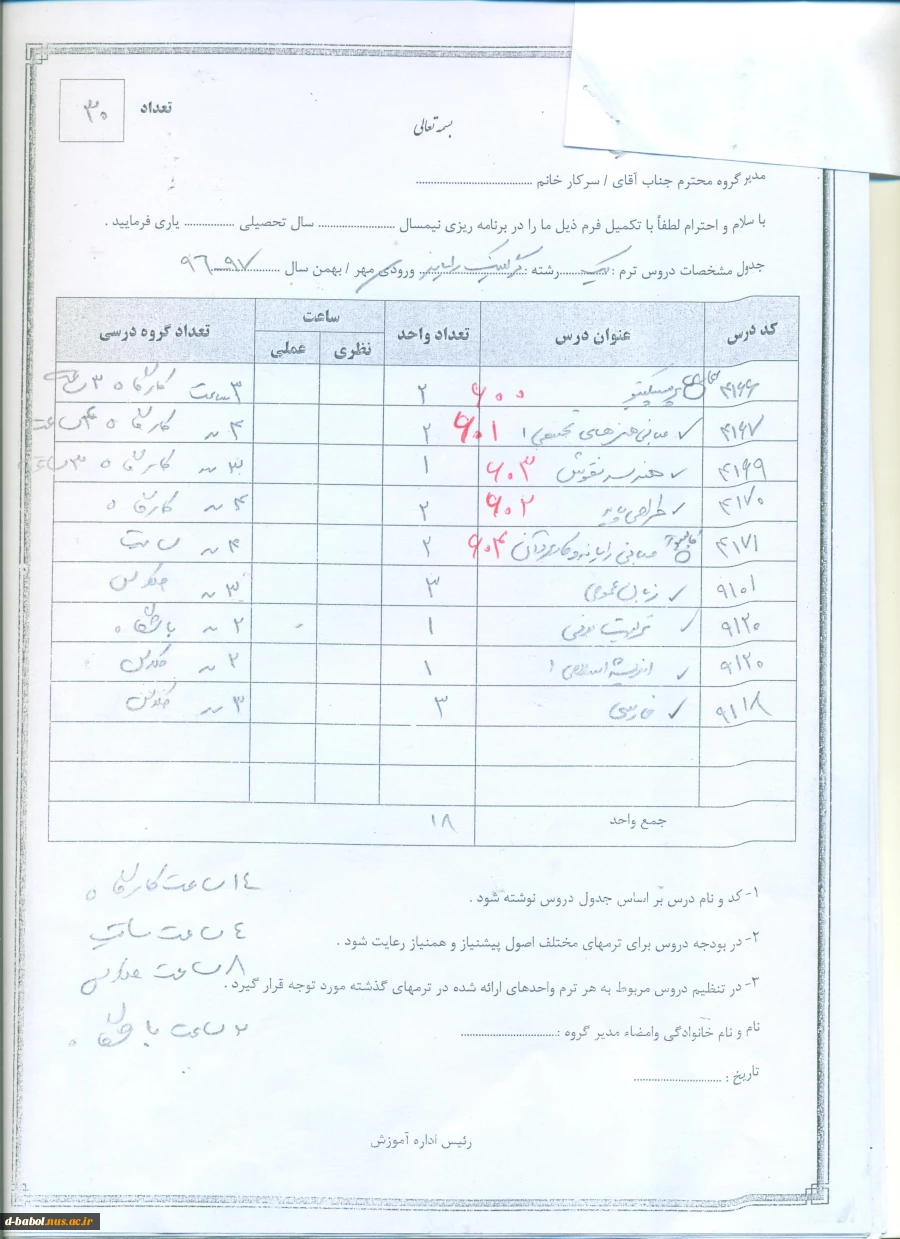 بسمه تعالی
تعداد ۳۰
مدیر گروه محترم جناب آقای / سرکار خانم ..............................
با سلام و احترام لطفاً با تکمیل فرم ذیل ما را در برنامه ریزی نیمسال .................... سال تحصیلی ............. یاری فرمایید .
جدول مشخصات دروس ترم : یک رشته : گرافیک رایانه ورودی مهر / بهمن سال ۹۶-۹۷
کد درس عنوان درس تعداد واحد ساعت تعداد گروه درسی
نظری عملی
۴۱۶۶ پرسپکتیو ۶۰۰ ۲ ۳ ساعت کارگاه ۳
۴۱۶۷ مبانی هنرهای تجسمی ۱ ۶۰۱ ۲ ۴ کارگاه ۴ ساعت
۴۱۶۹ هندسه نقوش ۶۰۳ ۱ ۳ کارگاه ۳ ساعت
۴۱۷۰ طراحی پایه ۶۰۲ ۲ ۴ کارگاه
۴۱۷۱ مبانی رایانه و کاربرد آن ۶۰۴ ۲ ۴ سایت
۹۱۰۱ زبان عمومی ۳ ۳ کلاس
۹۱۲۰ تربیت بدنی ۱ ۲ باشگاه
۹۱۲۰ اندیشه اسلامی ۱ ۱ ۲ کلاس
۹۱۱۸ فارسی ۳ ۳ کلاس
جمع واحد ۱۸
۱- کد و نام درس بر اساس جدول دروس نوشته شود .
۲- در بودجه دروس برای ترمهای مختلف اصول پیشنیاز و همنیاز رعایت شود .
۳- در تنظیم دروس مربوط به هر ترم واحدهای ارائه شده در ترمهای گذشته مورد توجه قرار گیرد .
نام و نام خانوادگی وامضاء مدیر گروه :.........................
تاریخ : .......................
رئیس اداره آموزش
۱۴ ساعت کارگاه
۴ ساعت سایت
۸ ساعت کلاس
۲ ساعت باشگاه
d-babol.nus.ac.ir